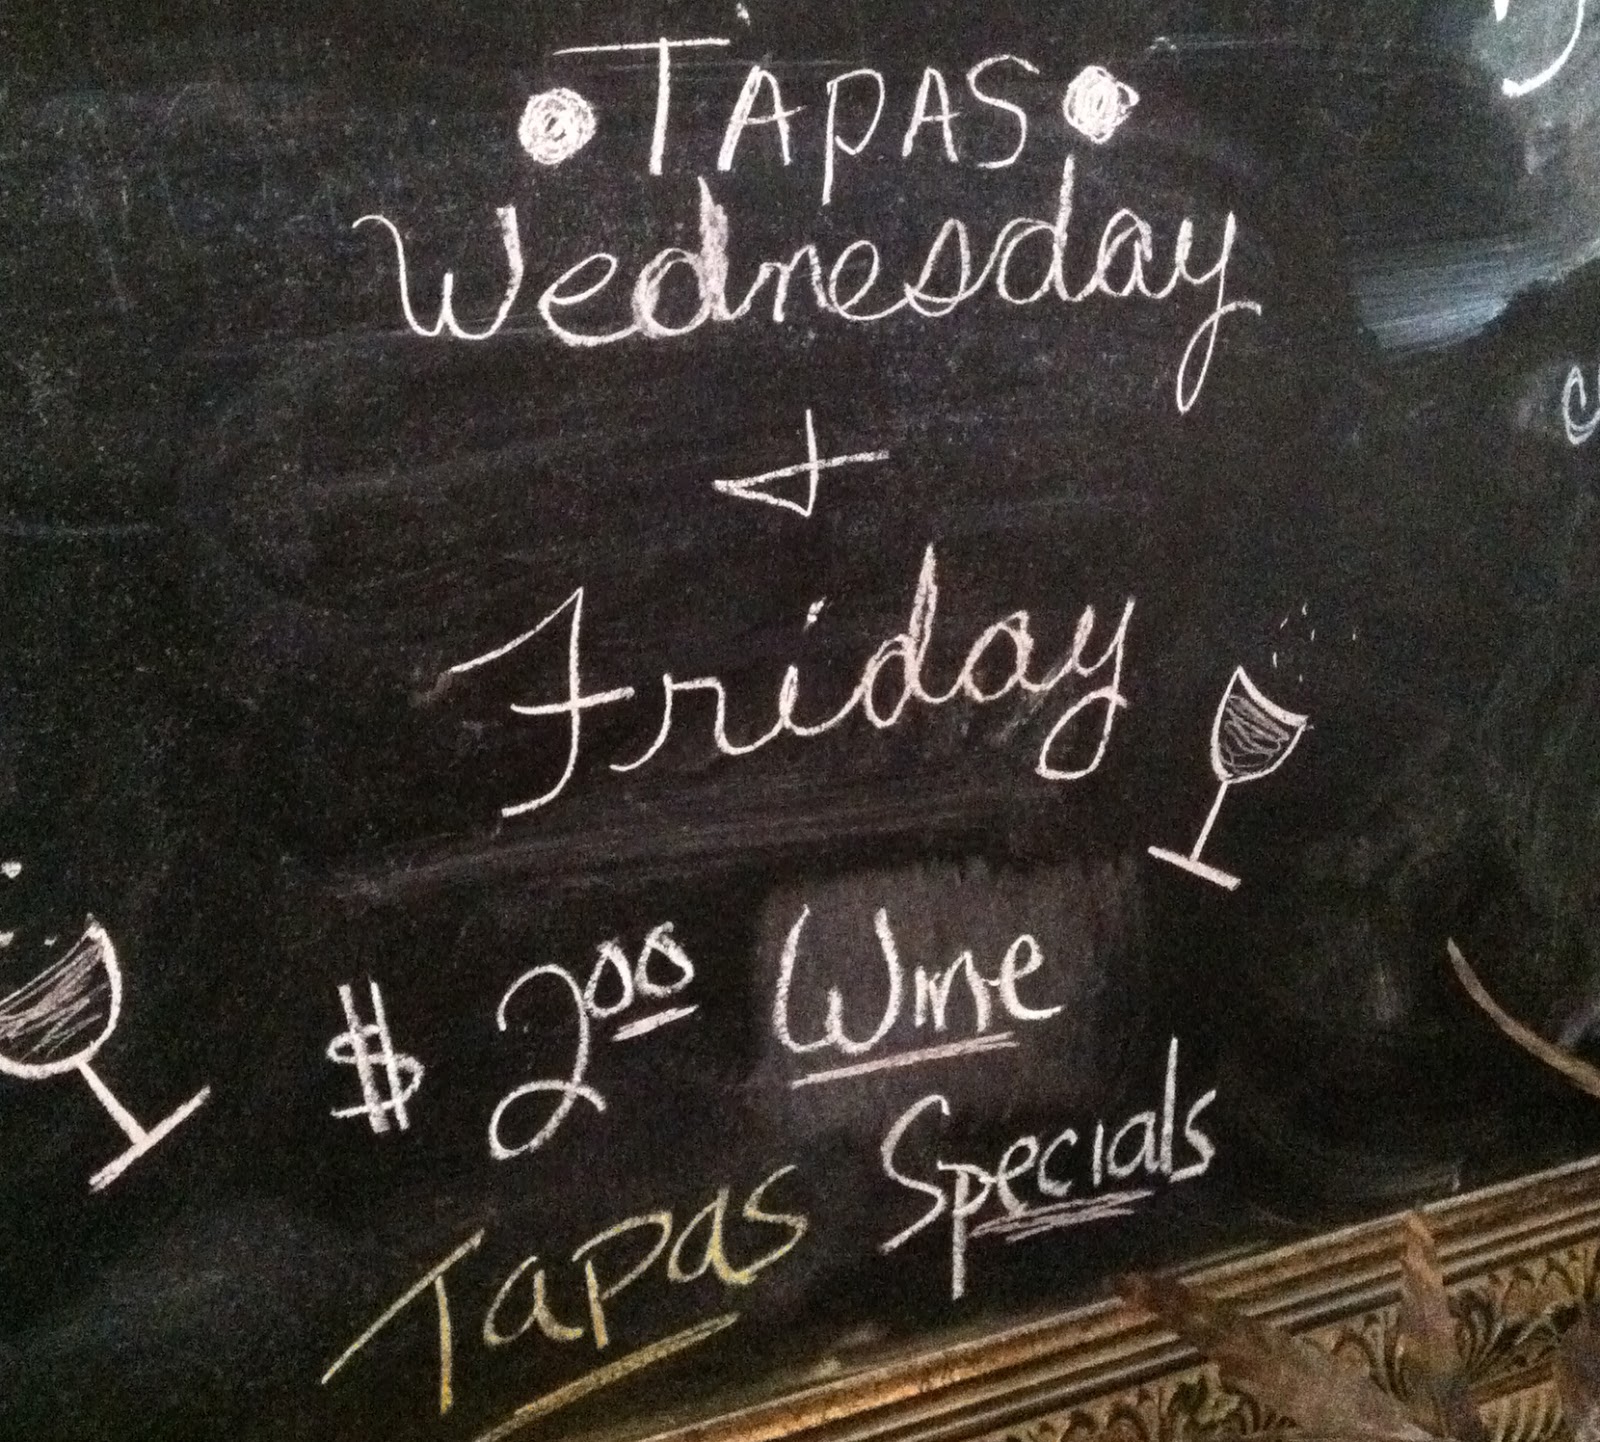 TAPAS
Wednesday
+
Friday
$ 2.00 Wine
Tapas Specials